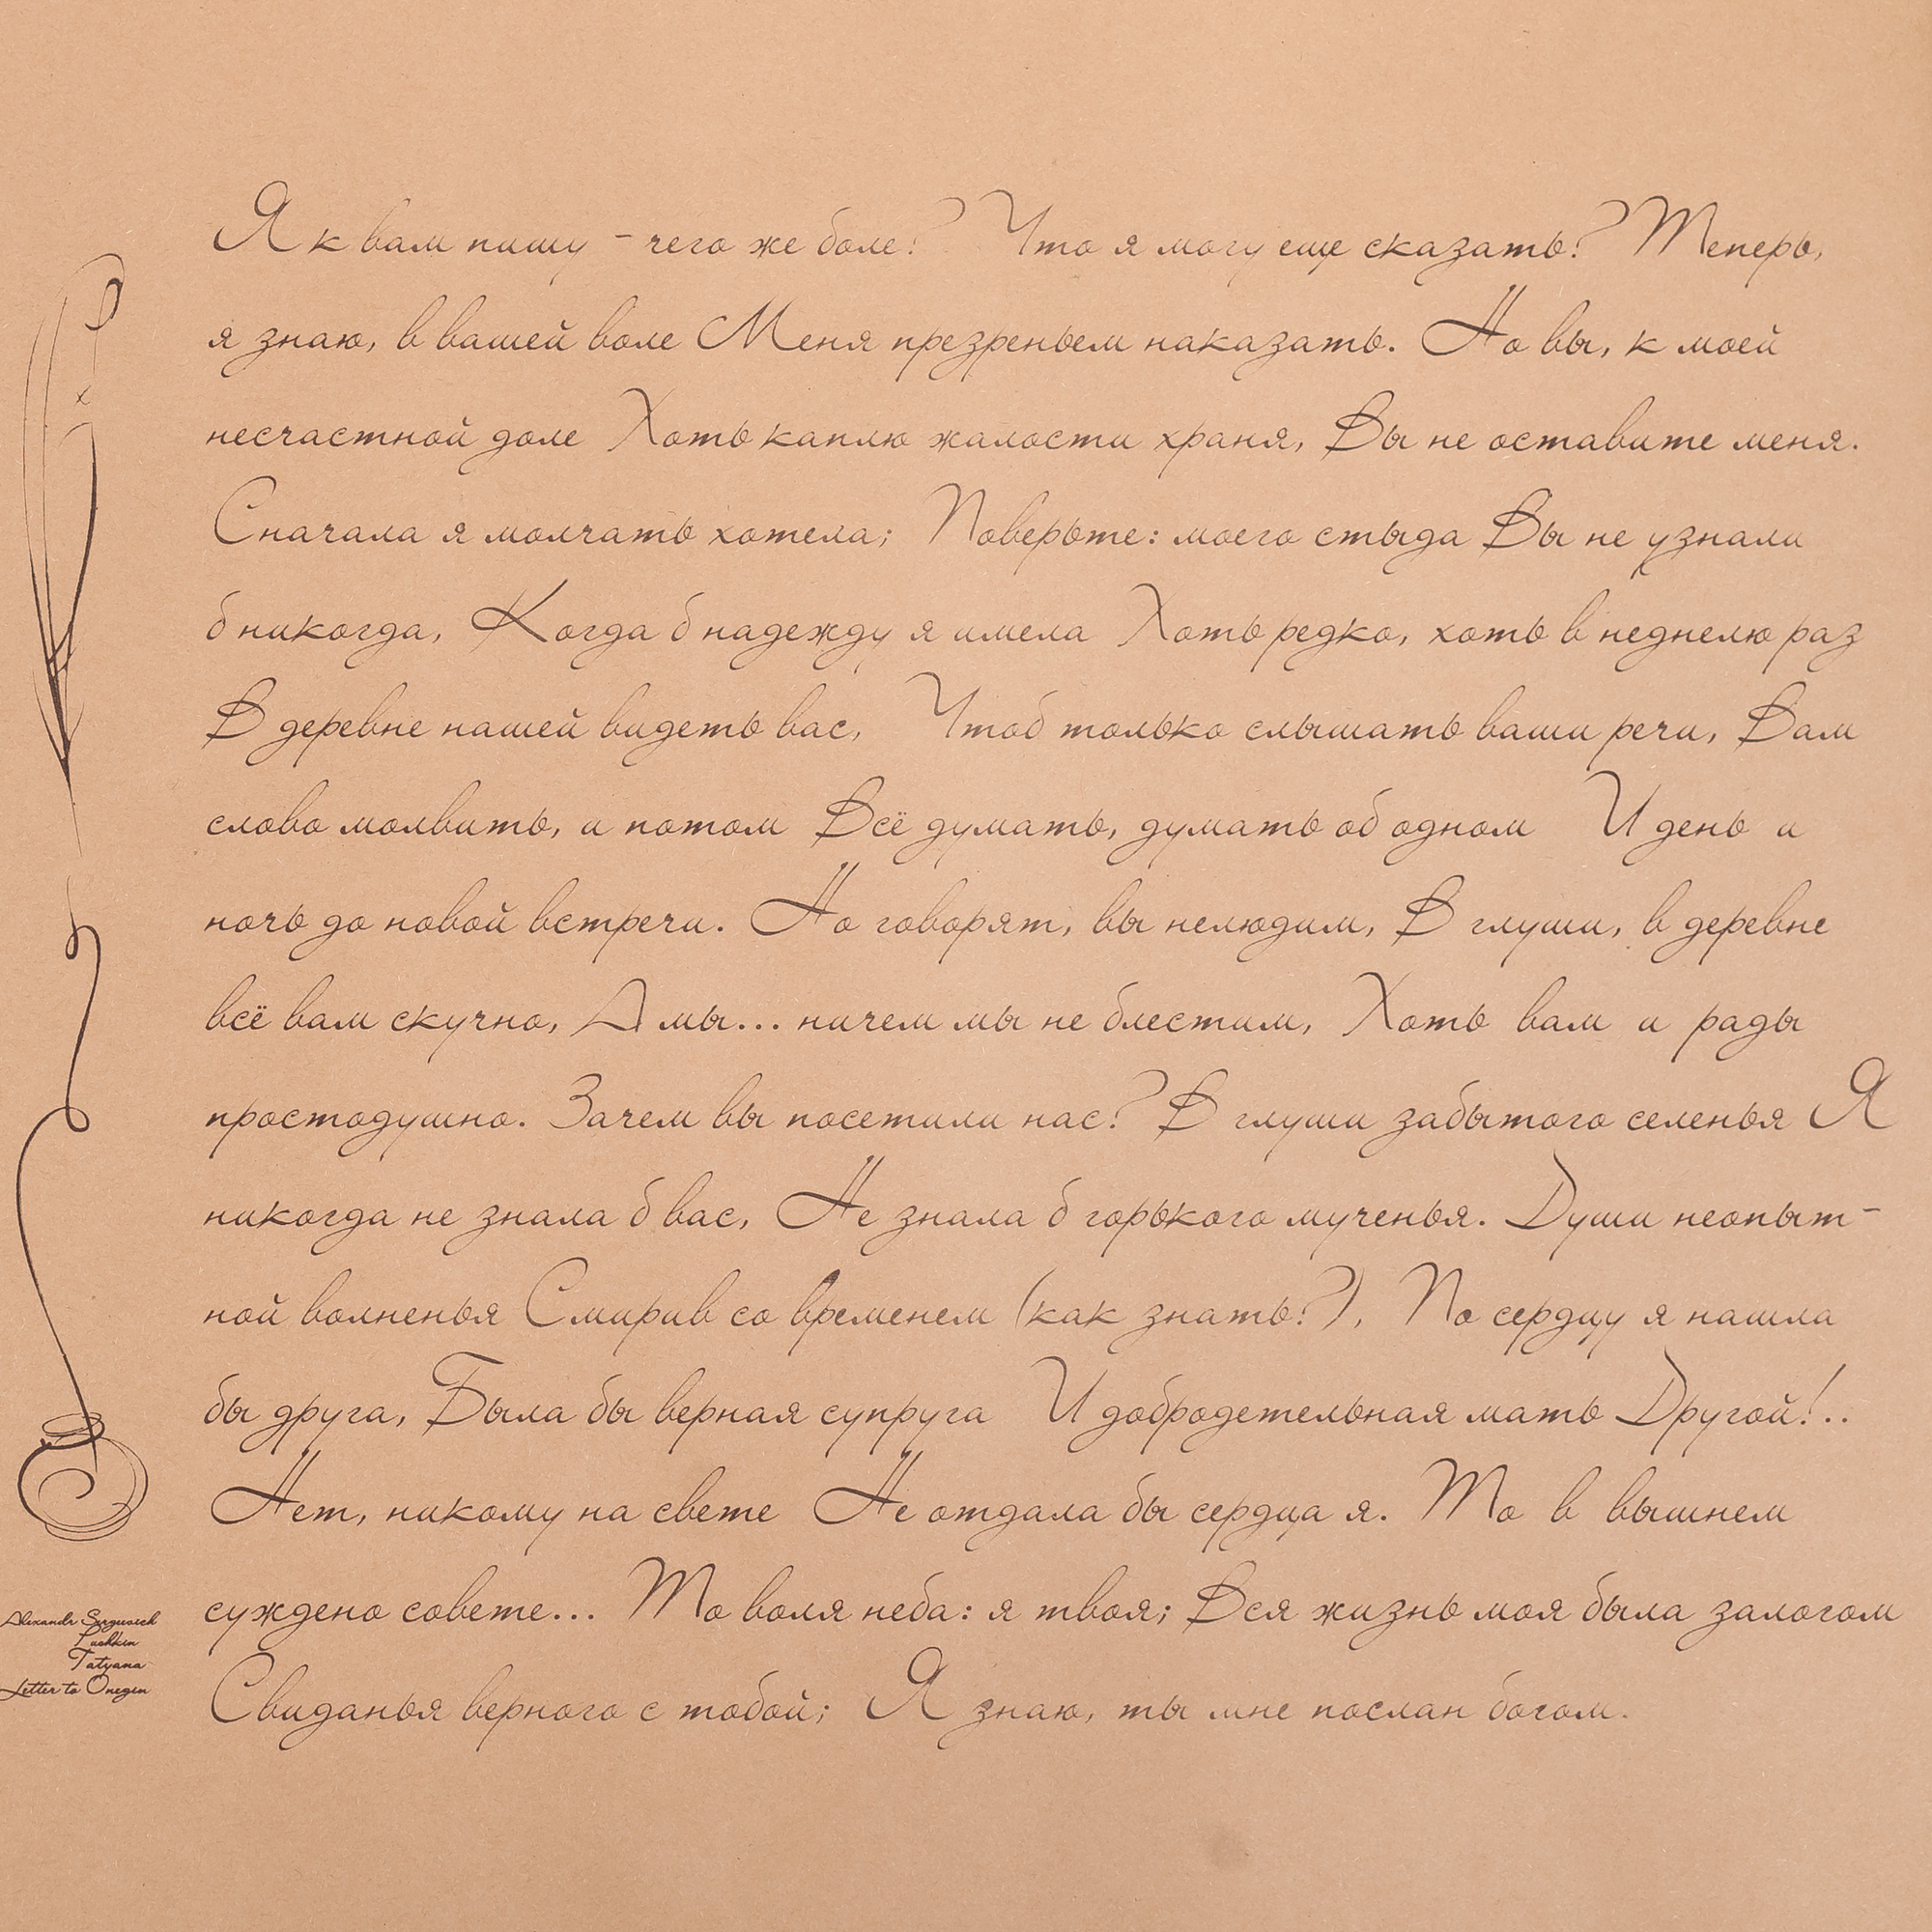 Я к вам пишу – чего же боле? Что я могу еще сказать? Теперь,
я знаю, в вашей воле Меня презреньем наказать. Но вы, к моей
несчастной доле Хоть каплю жалости храня, Вы не оставите меня.
Сначала я молчать хотела; Поверьте: моего стыда Вы не узнали
б никогда, Когда б надежду я имела Хоть редко, хоть в неднелю раз
В деревне нашей видеть вас, Чтоб только слышать ваши речи, Вам
слово молвить, и потом Всё думать, думать об одном И день и
ночь до новой встречи. Но говорят, вы нелюдим, В глуши, в деревне
всё вам скучно, А мы... ничем мы не блестим, Хоть вам и рады
простодушно. Зачем вы посетили нас? В глуши забытого селенья Я
никогда не знала б вас, Не знала б горького мученья. Души неопыт-
ной волненья Смирив со временем (как знать?), По сердцу я нашла
бы друга, Была бы верная супруга И добродетельная мать Другой!..
Нет, никому на свете Не отдала бы сердца я. То в вышнем
суждено совете... То воля неба: я твоя; Вся жизнь моя была залогом
Свиданья верного с тобой; Я знаю, ты мне послан богом.
Alexandr Serguevich
Puchkin
Tatyana
Letter to Onegin